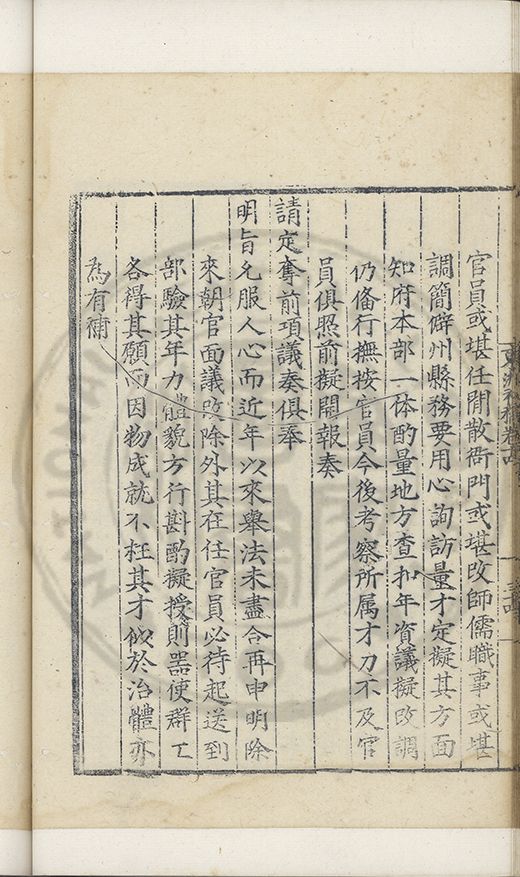 官員或堪任閒散衙門或堪改師儒職事或堪
調簡僻州縣務要用心詢訪量才定擬其方面
知府本部一体酌量地方查扣年資議擬改調
仍備行撫按官員今後考察所属才力不及官
員俱照前擬開報奏
請定奪前項議奏俱奉
明旨允服人心而近年以來舉法未盡合再申明除
來朝官面議改除外其在任官員必待起送到
部驗其年力體貌方行斟酌擬授則器使群工
各得其願而因物成就不枉其才似於治體亦
為有補